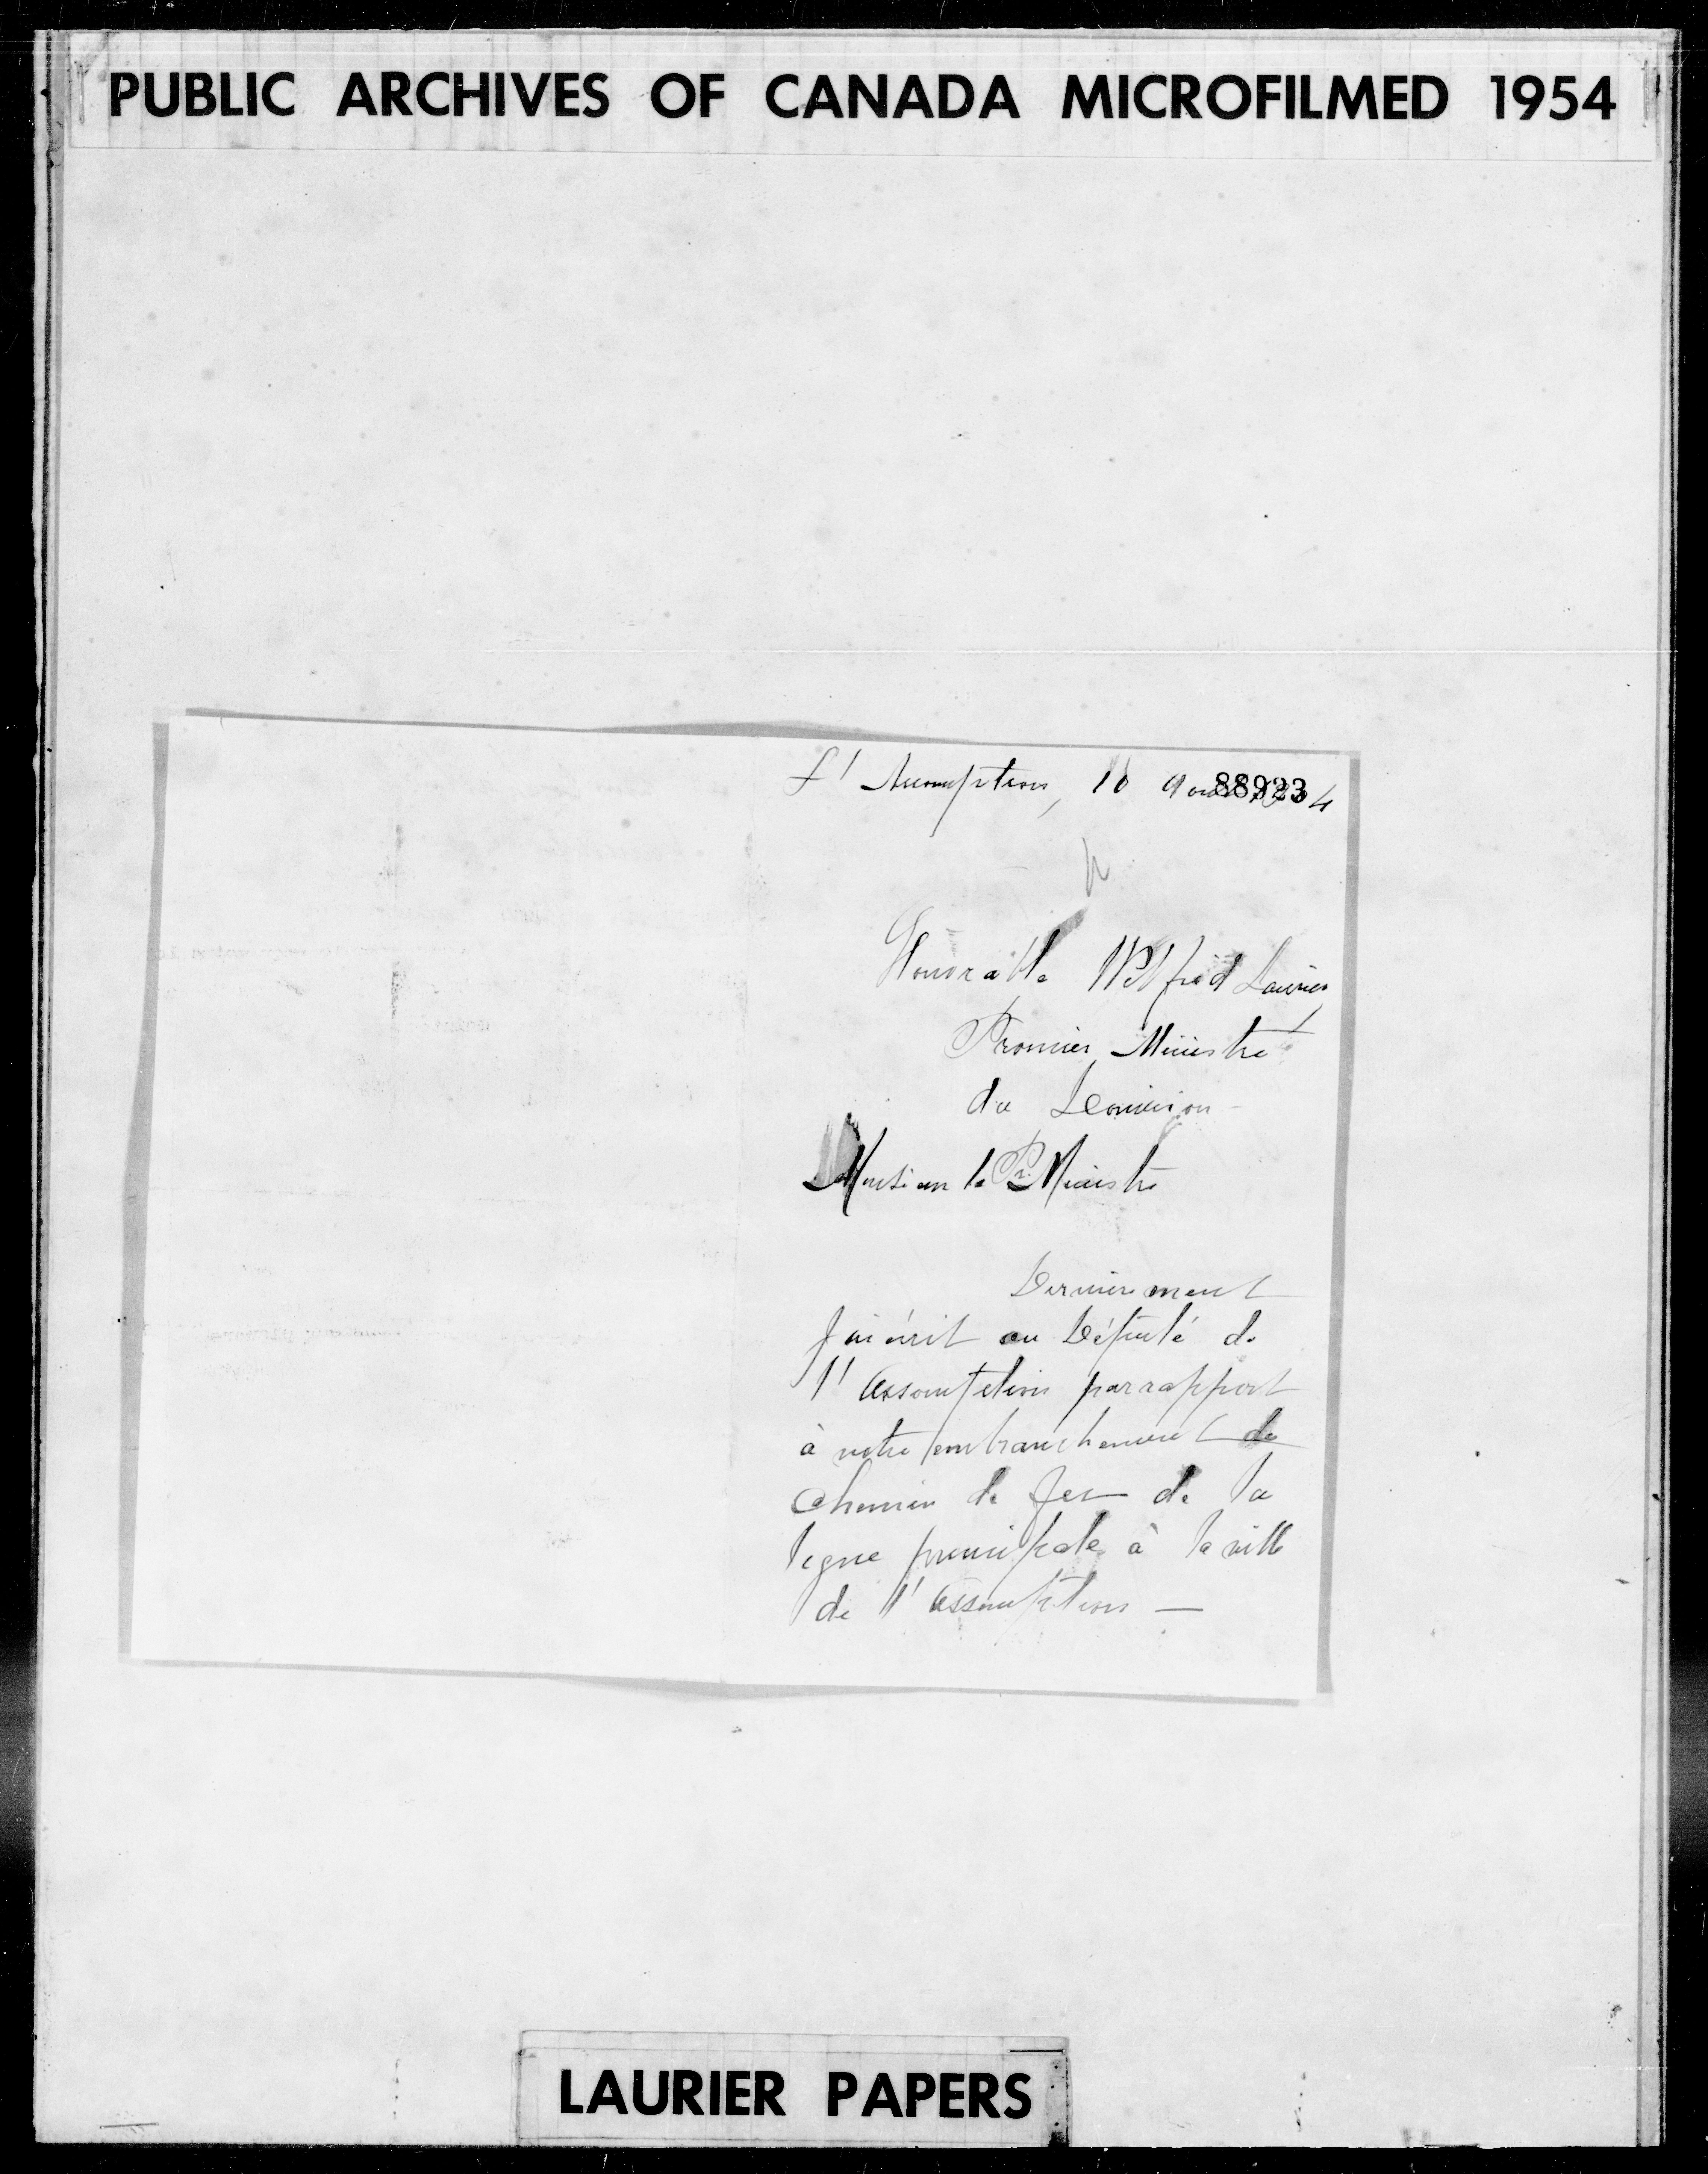 PUBLIC ARCHIVES OF CANADA MICROFILMED 1954
L'Assomption, 10 Aout 1904
88923
Honorable Wilfrid Laurier,
Premier Ministre
du Dominion -
Monsieur le Pr. Ministre
Dernièrement
J'ai écrit au Député de
l'Assomption par rapport
à notre embranchement de
chemin de fer de la
ligne principale à la ville
de l'Assomption —
LAURIER PAPERS